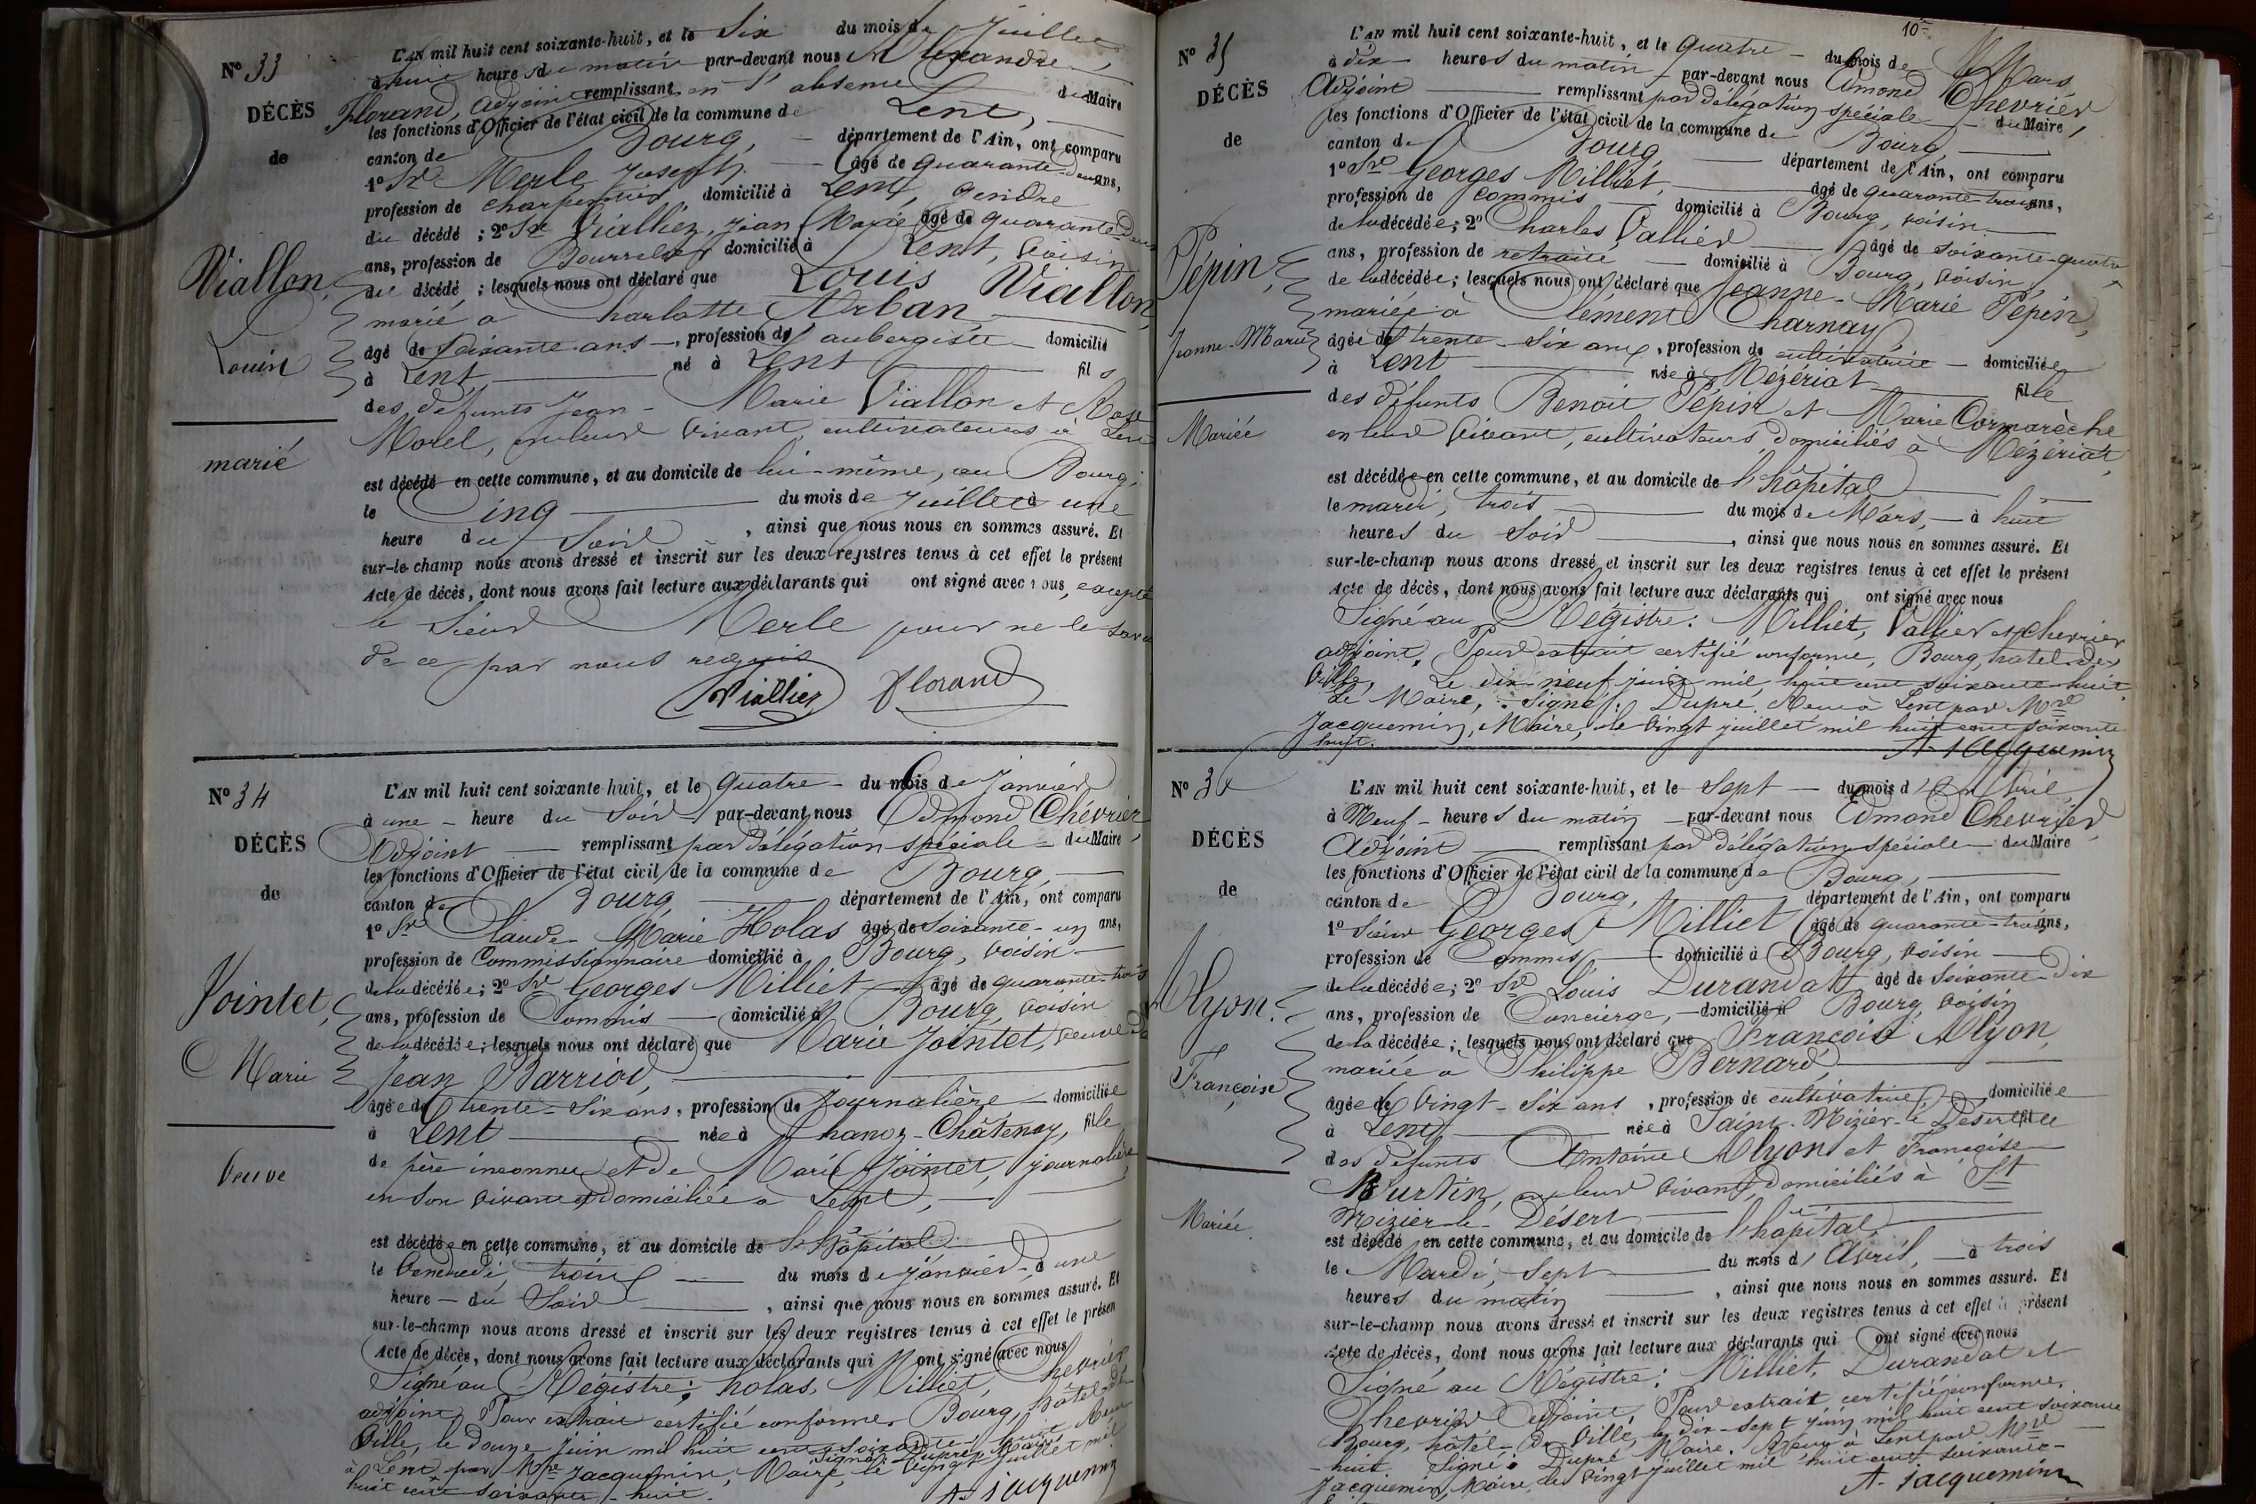 N° 33
DÉCÈS
de
Viallon,
Louis
marié
L'AN mil huit cent soixante-huit, et le Six du mois de Juillet
à huit heures du matin par-devant nous Alexandre
Florand, Adjoint remplissant en l'absence du Maire
les fonctions d'Officier de l'état civil de la commune de Lent,
canton de Bourg, département de l'Ain, ont comparu
1° Sr Merle Joseph âgé de quarante-deux ans,
profession de charpentier, domicilié à Lent, gendre
du décédé ; 2° Sr Viallier, Jean Marie âgé de quarante-deux
ans, profession de Bourrelier domicilié à Lent, voisin
du décédé ; lesquels nous ont déclaré que Louis Viallon,
marié à Charlotte Arban
âgé de soixante ans, profession d'aubergiste domicilié
à Lent, né à Lent fils
des défunts Jean-Marie Viallon et Rose
Morel, en leur vivant cultivateurs à Lent
est décédé en cette commune, et au domicile de lui-même, au Bourg,
le Cinq du mois de Juillet à une
heure du Soir, ainsi que nous nous en sommes assuré. Et
sur-le-champ nous avons dressé et inscrit sur les deux registres tenus à cet effet le présent
Acte de décès, dont nous avons fait lecture aux déclarants qui ont signé avec nous, excepté
le Sieur Merle pour ne le savoir
de ce par nous requis
Viallier Florand
N° 34
DÉCÈS
de
Jointet,
Marie
Veuve
L'AN mil huit cent soixante-huit, et le quatre du mois de Janvier
à une heure du Soir par-devant nous Edmond Chevrier,
Adjoint remplissant par délégation spéciale du Maire
les fonctions d'Officier de l'état civil de la commune de Bourg,
canton de Bourg département de l'Ain, ont comparu
1° Sr Claude-Marie Holas âgé de soixante-un ans,
profession de Commissionnaire domicilié à Bourg, voisin
de la décédée ; 2° Sr Georges Milliet âgé de quarante-trois
ans, profession de Commis domicilié à Bourg, voisin
de la décédée ; lesquels nous ont déclaré que Marie Jointet, veuve de
Jean Barriod,
âgée de trente-six ans, profession de Journalière domiciliée
à Lent née à Chanoz-Châtenay, fille
de père inconnu et de Marie Jointet, journalière
en son vivant domiciliée à Lent,
est décédée en cette commune, et au domicile de l'hôpital
le Vendredi, trois du mois de Janvier à une
heure du Soir, ainsi que nous nous en sommes assuré. Et
sur-le-champ nous avons dressé et inscrit sur les deux registres tenus à cet effet le présent
Acte de décès, dont nous avons fait lecture aux déclarants qui ont signé avec nous
Signé au Régistre : holas, Milliet, Chevrier
adjoint. Pour extrait certifié conforme, Bourg, hôtel de
Ville, le douze juin mil huit cent soixante-huit
Signé : Dupré, Maire. Reçu
à Lent par Mre Jacquemin, Maire, le vingt juillet mil
huit cent soixante-huit.
A. Jacquemin
10e
N° 35
DÉCÈS
de
Pépin,
Jeanne-Marie
Mariée
L'AN mil huit cent soixante-huit, et le quatre du mois de Mars
à dix heures du matin par-devant nous Edmond Chevrier
Adjoint remplissant par délégation spéciale du Maire,
les fonctions d'Officier de l'état civil de la commune de Bourg
canton de Bourg, département de l'Ain, ont comparu
1° Sr Georges Milliet, âgé de quarante-trois ans,
profession de Commis domicilié à Bourg, voisin
de la décédée ; 2° Charles Vallier âgé de soixante-quatre
ans, profession de retraité domicilié à Bourg, voisin
de la décédée ; lesquels nous ont déclaré que Jeanne-Marie Pépin,
mariée à Clément Charnay
âgée de trente-six ans, profession de cultivatrice domiciliée
à Lent née à Mézériat fille
des défunts Benoit Pépin et Marie Cormarèche
en leur vivant, cultivateurs domiciliés à Mézériat,
est décédée en cette commune, et au domicile de l'hôpital
le mardi, trois du mois de Mars, à huit
heures du Soir, ainsi que nous nous en sommes assuré. Et
sur-le-champ nous avons dressé et inscrit sur les deux registres tenus à cet effet le présent
Acte de décès, dont nous avons fait lecture aux déclarants qui ont signé avec nous
Signé au Régistre : Milliet, Vallier et Chevrier
adjoint. Pour extrait certifié conforme, Bourg, hotel de
Ville, Le dix-neuf juin mil huit cent soixante-huit
Le Maire, Signé : Dupré. Reçu à Lent par Mre
Jacquemin, Maire, le vingt juillet mil huit cent soixante
huit.
A. Jacquemin
N° 36
DÉCÈS
de
Alyon,
Françoise
Mariée
L'AN mil huit cent soixante-huit, et le Sept du mois d'Avril
à Neuf heures du matin par-devant nous Edmond Chevrier
Adjoint remplissant par délégation spéciale du Maire
les fonctions d'Officier de l'état civil de la commune de Bourg,
canton de Bourg, département de l'Ain, ont comparu
1° Sieur Georges Milliet âgé de quarante-trois ans,
profession de Commis, domicilié à Bourg, voisin
de la décédée ; 2° Sr Louis Durandot âgé de soixante-dix
ans, profession de Concierge, domicilié à Bourg, voisin
de la décédée ; lesquels nous ont déclaré que Françoise Alyon,
mariée à Philippe Bernard,
âgée de vingt-six ans, profession de cultivatrice, domiciliée
à Lent née à Saint-Nizier-le-Désert fille
des défunts Antoine Alyon et Françoise
Burtin, en leur vivant domiciliés à St
Nizier-le-Désert
est décédé en cette commune, et au domicile de l'hôpital
le Mardi, Sept du mois d'Avril, à trois
heures du matin, ainsi que nous nous en sommes assuré. Et
sur-le-champ nous avons dressé et inscrit sur les deux registres tenus à cet effet le présent
Acte de décès, dont nous avons fait lecture aux déclarants qui ont signé avec nous
Signé au Régistre : Milliet, Durandot et
Chevrier adjoint. Pour extrait certifié conforme,
Bourg, hôtel-de Ville, le dix-sept juin mil huit cent soixante
-huit Signé : Dupré Maire. Reçu à Lent par Mre
Jacquemin, Maire, le vingt juillet mil huit cent soixante-
A. Jacquemin